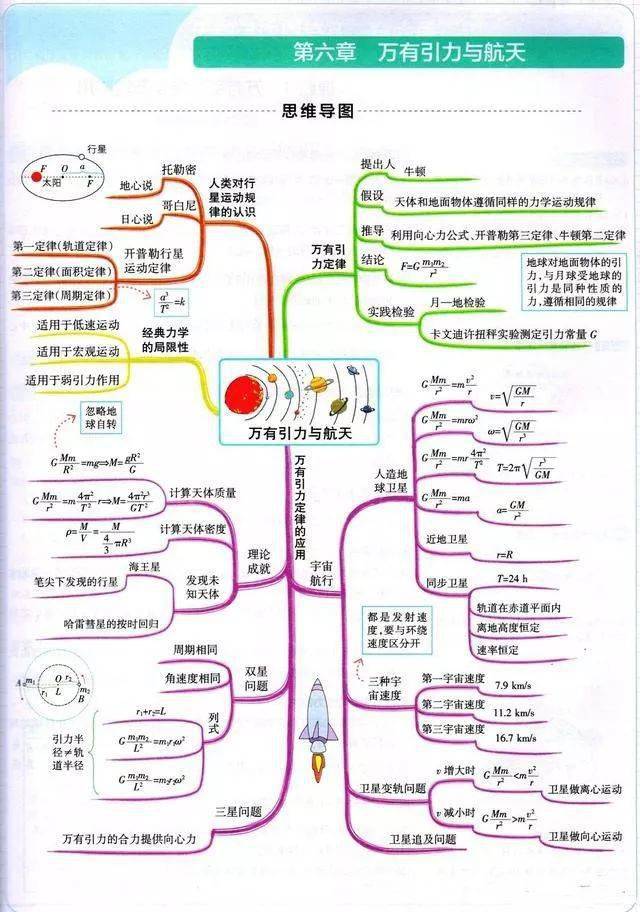 第六章 万有引力与航天
思维导图
行星
F O a
太阳 F
托勒密
地心说
哥白尼
日心说
人类对行
星运动规
律的认识
第一定律(轨道定律)
第二定律(面积定律)
第三定律(周期定律)
开普勒行星
运动定律
a³/T²=k
适用于低速运动
适用于宏观运动
适用于弱引力作用
经典力学
的局限性
万有引
力定律
提出人 牛顿
假设 天体和地面物体遵循同样的力学运动规律
推导 利用向心力公式、开普勒第三定律、牛顿第二定律
结论 F=G m₁m₂/r²
地球对地面物体的引
力,与月球受地球的
引力是同种性质的
力,遵循相同的规律
实践检验
月—地检验
卡文迪许扭秤实验测定引力常量 G
万有引力与航天
万有引力定律的应用
忽略地
球自转
G Mm/R²=mg⇒M=gR²/G
G Mm/r²=m 4π²/T² r⇒M=4π²r³/GT²
计算天体质量
ρ=M/V=M/(4/3 πR³)
计算天体密度
理论
成就
海王星
笔尖下发现的行星
哈雷彗星的按时回归
发现未
知天体
周期相同
角速度相同
双星
问题
A m₁ r₁ O r₂ L m₂ B
r₁+r₂=L
G m₁m₂/L²=m₁r₁ω²
G m₁m₂/L²=m₂r₂ω²
列式
引力半
径≠轨
道半径
三星问题
万有引力的合力提供向心力
宇宙
航行
人造地
球卫星
G Mm/r²=m v²/r v=√(GM/r)
G Mm/r²=mrω² ω=√(GM/r³)
G Mm/r²=mr 4π²/T² T=2π√(r³/GM)
G Mm/r²=ma a=GM/r²
近地卫星 r=R
同步卫星 T=24 h
轨道在赤道平面内
离地高度恒定
速率恒定
都是发射速
度,要与环绕
速度区分开
三种宇
宙速度
第一宇宙速度 7.9 km/s
第二宇宙速度 11.2 km/s
第三宇宙速度 16.7 km/s
卫星变轨问题
v 增大时 G Mm/r²<m v²/r 卫星做离心运动
v 减小时 G Mm/r²>m v²/r 卫星做向心运动
卫星追及问题